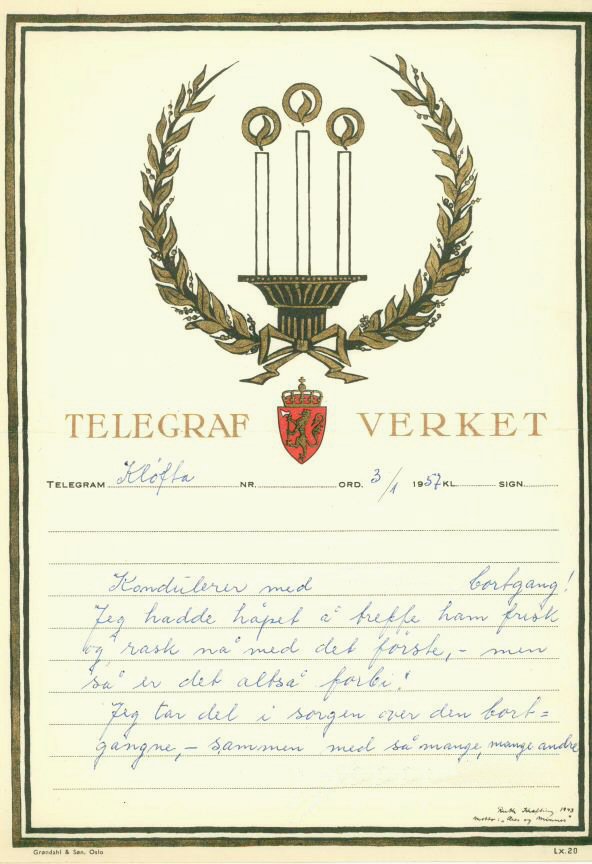 TELEGRAF VERKET
TELEGRAM Kløfta NR. ORD. 3/1 1957 KL. SIGN.
Kondulerer med bortgang!
Jeg hadde håpet å treffe ham frisk
og rask nå med det første, - men
så er det altså forbi!
Jeg tar del i sorgen over den bort=
gangne, - sammen med så mange, mange andre
1943
Grøndahl & Søn, Oslo
Lx. 20